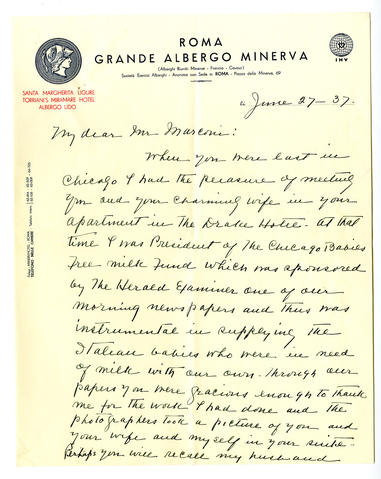 ROMA
GRANDE ALBERGO MINERVA
(Alberghi Riuniti Minerva - Francia - Cavour)
Società Esercizi Alberghi - Anonima con Sede in ROMA - Piazza della Minerva, 69
IHV
SANTA MARGHERITA LIGURE
TORRIANI'S MIRAMARE HOTEL
ALBERGO LIDO
June 27-37.
My dear Mr Marconi:
When you were last in
Chicago I had the pleasure of meeting
you and your charming wife in your
apartment in The Drake Hotel. At that
time I was President of The Chicago Babies
Free milk Fund which was sponsored
by The Herald Examiner one of our
morning newspapers and thus was
instrumental in supplying the
Italian babies who were in need
of milk with our own. Through our
papers you were gracious enough to thank
me for the work I had done and the
photographers took a picture of you and
your wife and myself in your suite.
Perhaps you will recall my husband